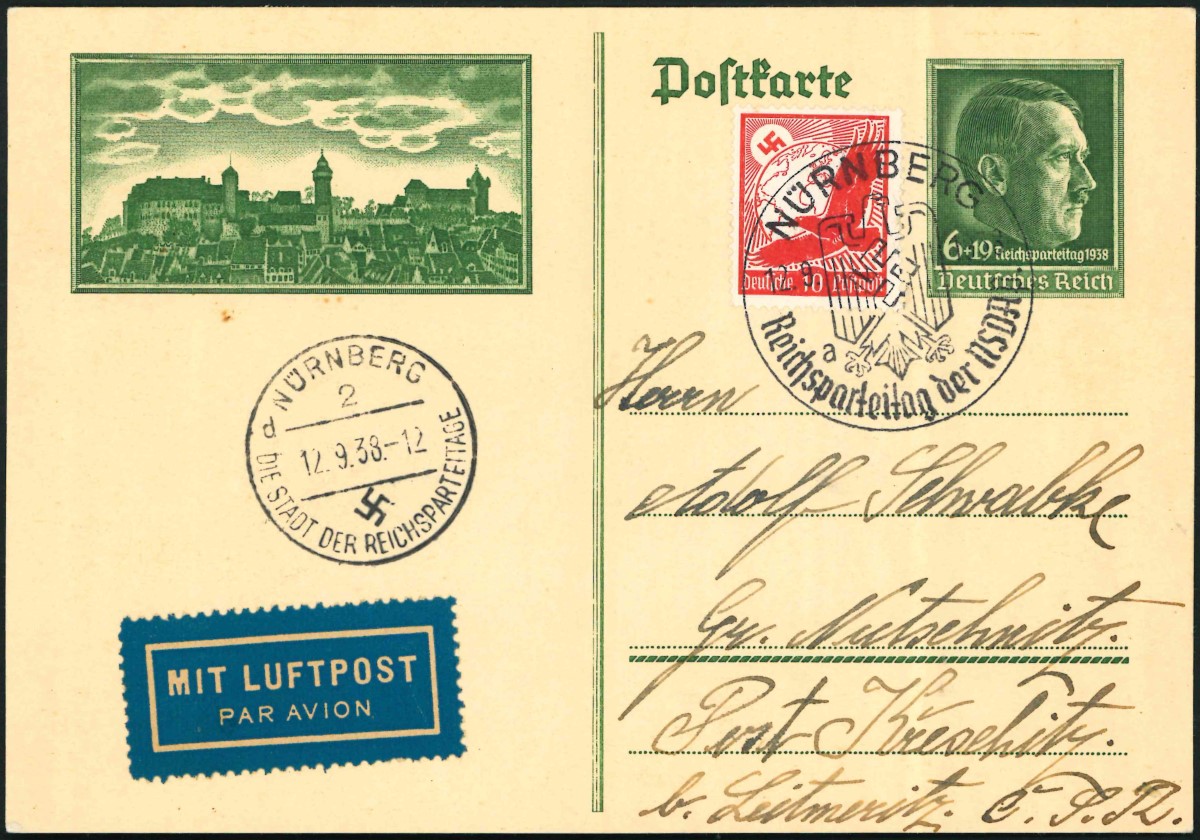 Postkarte
6+19 Reichsparteitag 1938
Deutsches Reich
Deutsche 10 Luftpost
NÜRNBERG
12.9.
a
Reichsparteitag der NSDAP.
NÜRNBERG
2
d
12.9.38.-12
DIE STADT DER REICHSPARTEITAGE
MIT LUFTPOST
PAR AVION
Herrn
Adolf Schwabke
Gr. Nutschnitz.
Post Kreschitz.
b. Leitmeritz. Č.S.R.